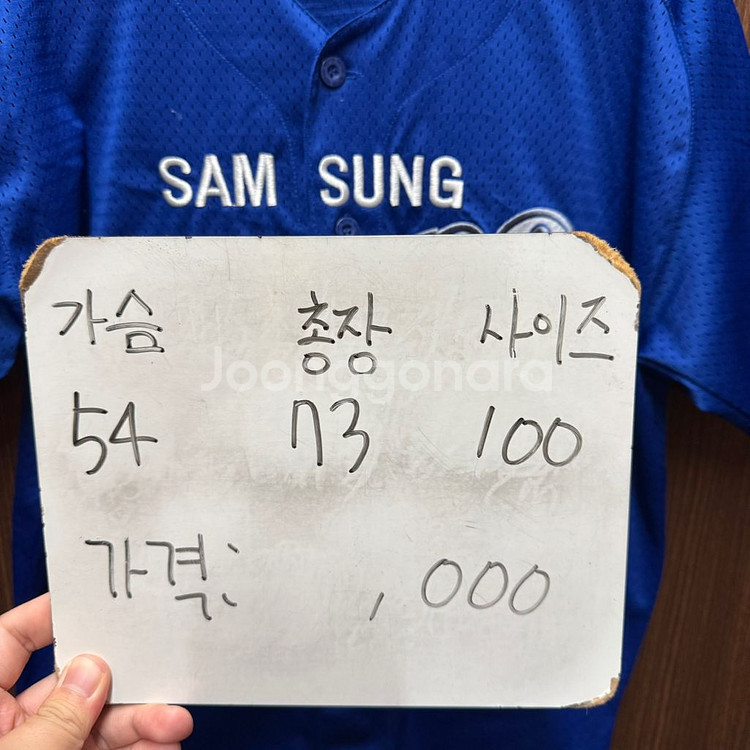 SAM SUNG
가슴 총장 사이즈
Joonggonara
54 73 100
가격: ,000